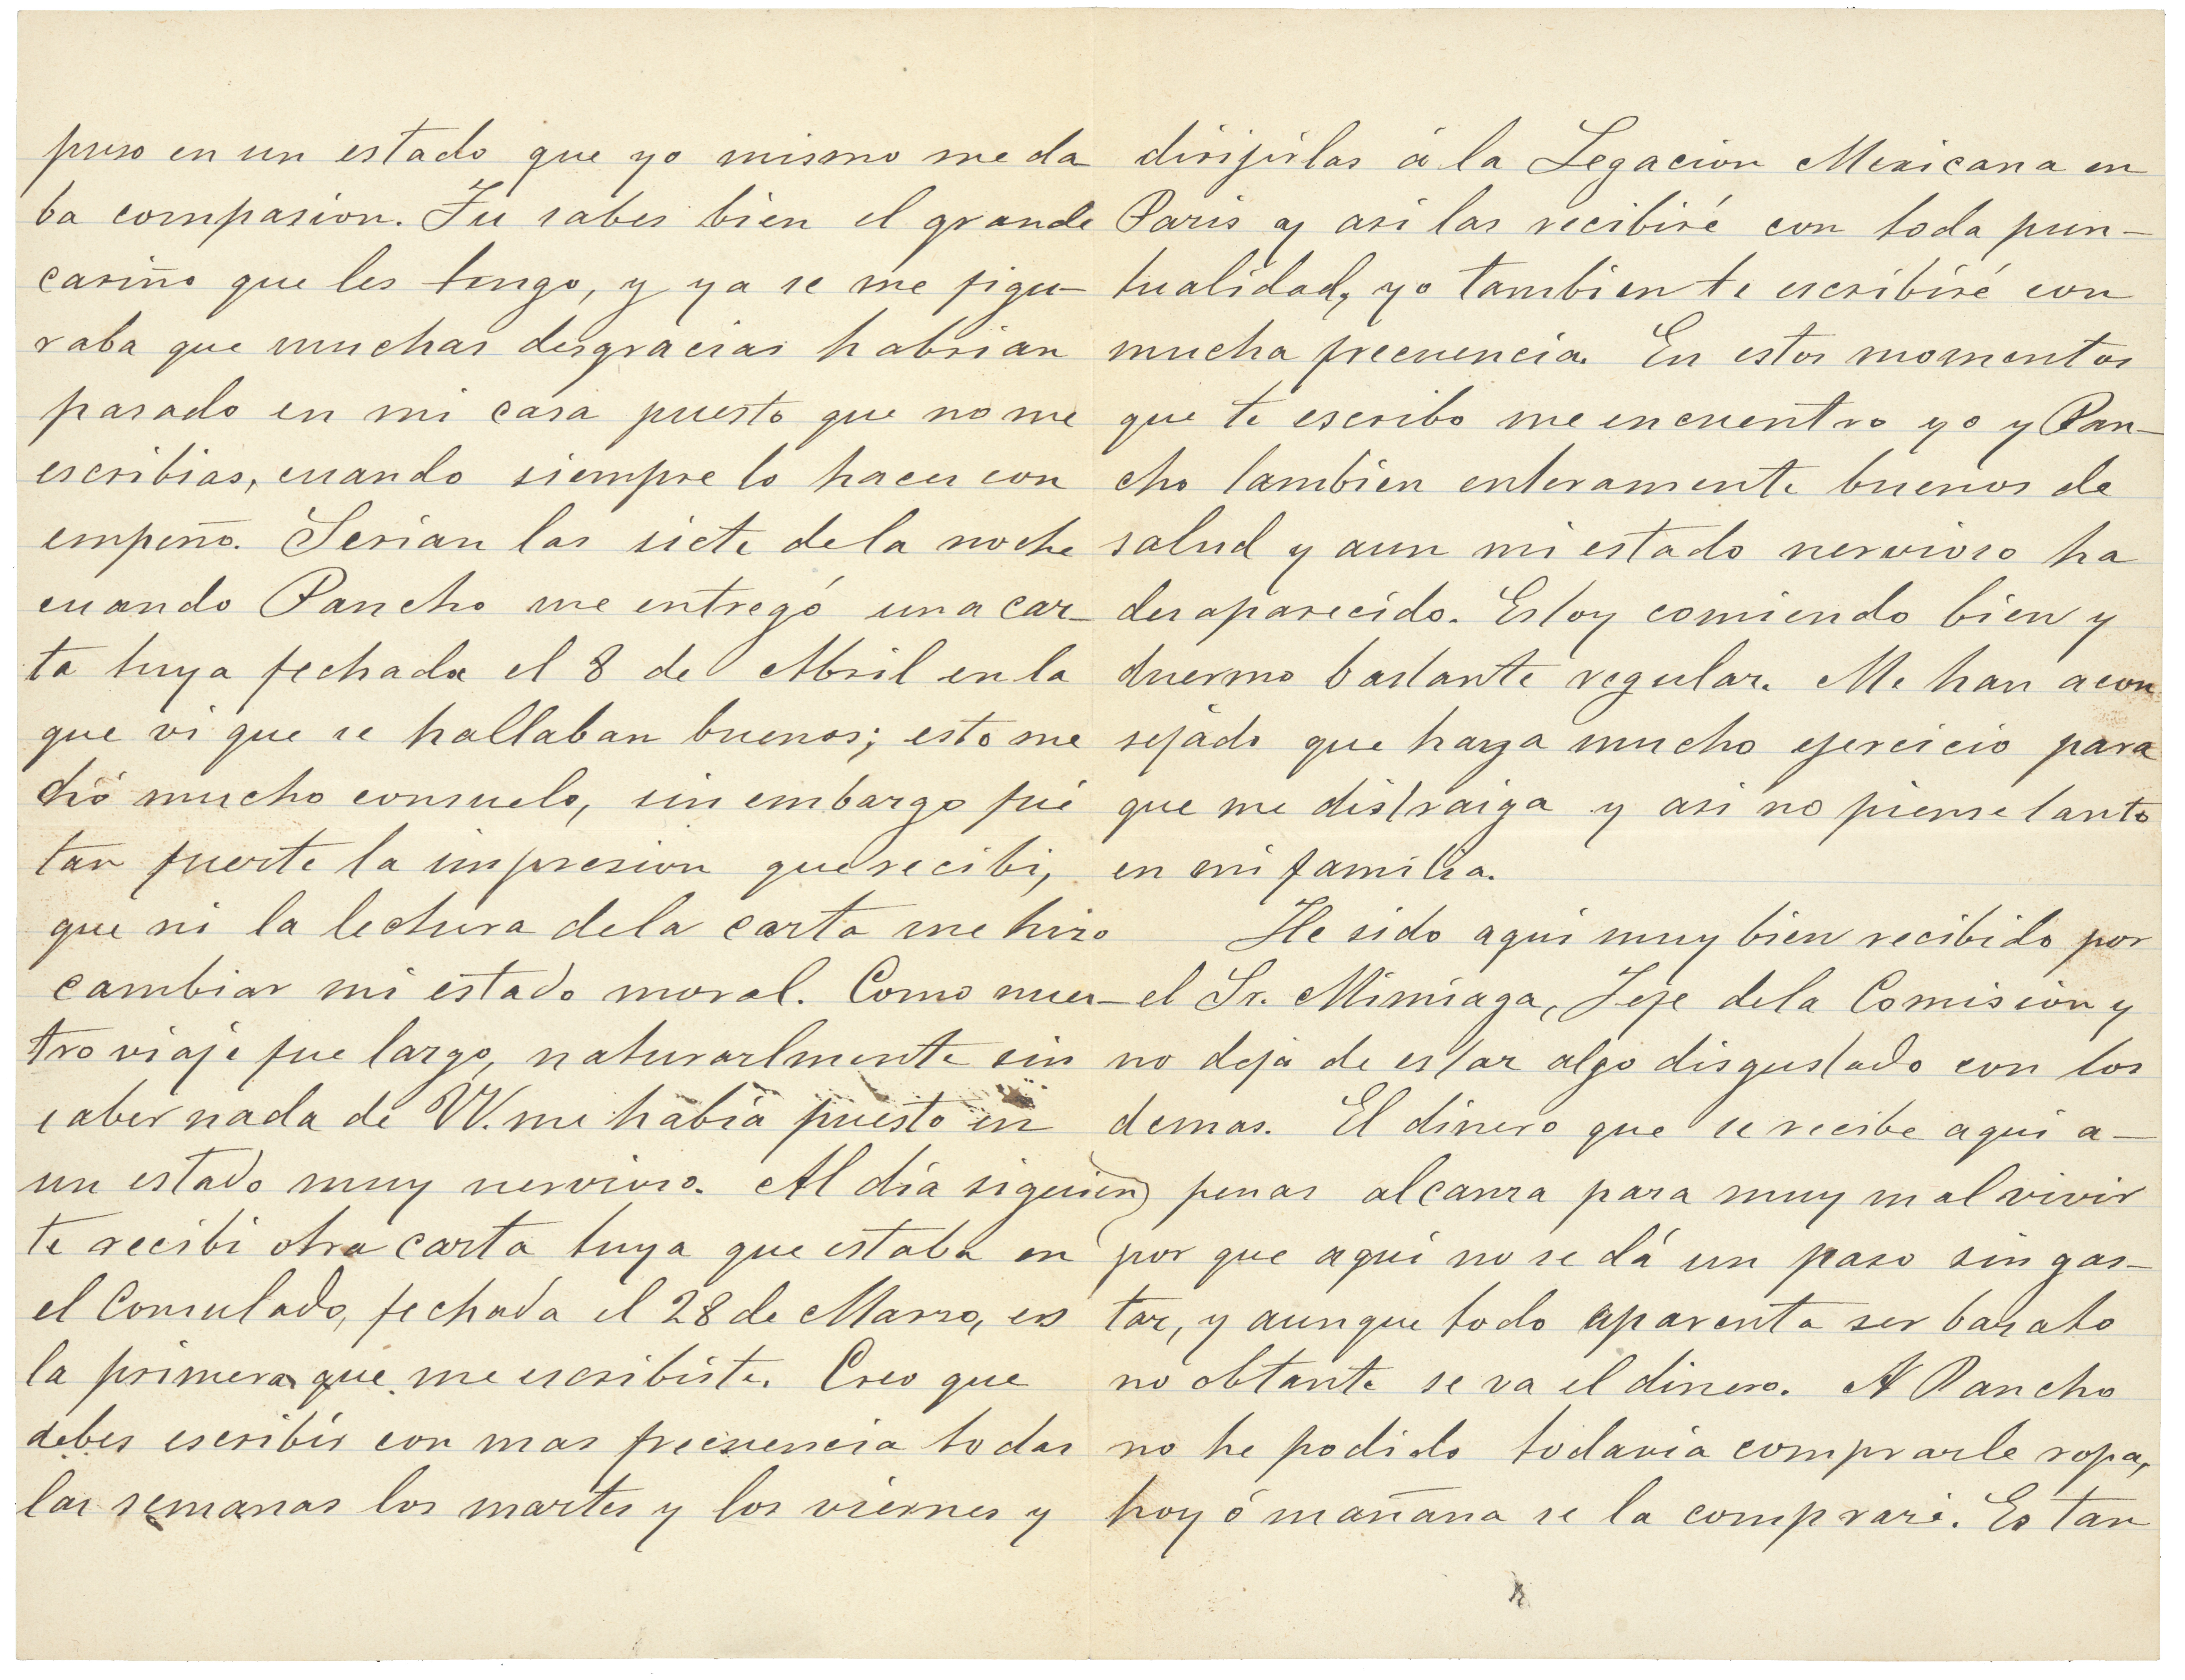 puso en un estado que yo mismo me da
ba compasion. Tu sabes bien el grande
cariño que les tengo, y ya se me figu-
raba que muchas desgracias habrian
pasado en mi casa puesto que no me
escribias, cuando siempre lo haces con
empeño. Serian las siete de la noche
cuando Pancho me entregó una car-
ta tuya fechada el 8 de Abril en la
que vi que se hallaban buenos; esto me
dió mucho consuelo, sin embargo fué
tan fuerte la impresion que recibi,
que ni la lectura de la carta me hizo
cambiar mi estado moral. Como nues-
tro viaje fue largo, naturarlmente sin
saber nada de VV. me habia puesto en
un estado muy nervioso. Al dia siguien
te recibi otra carta tuya que estaba en
el Consulado, fechada el 28 de Marzo, es
la primera que me escribiste. Creo que
debes escribir con mas frecuencia todas
las semanas los martes y los viernes y
dirijirlas á la Legacion Mexicana en
Paris y asi las recibiré con toda pun-
tualidad, yo tambien te escribiré con
mucha frecuencia. En estos momentos
que te escribo me encuentro yo y Pan-
cho tambien enteramente buenos de
salud y aun mi estado nervioso ha
desaparecido. Estoy comiendo bien y
duermo bastante regular. Me han acon
sejado que haga mucho ejercicio para
que me distraiga y asi no piense tanto
en mi familia.
He sido aqui muy bien recibido por
el Sr. Mimiaga, Jefe de la Comision y
no deja de estar algo disgustado con los
demas. El dinero que se recibe aqui a-
penas alcanza para muy mal vivir
por que aqui no se dá un paso sin gas-
tar, y aunque todo aparenta ser barato
no obtante se va el dinero. A Pancho
no he podido todavia comprarle ropa,
hoy ó mañana se la compraré. Es tan